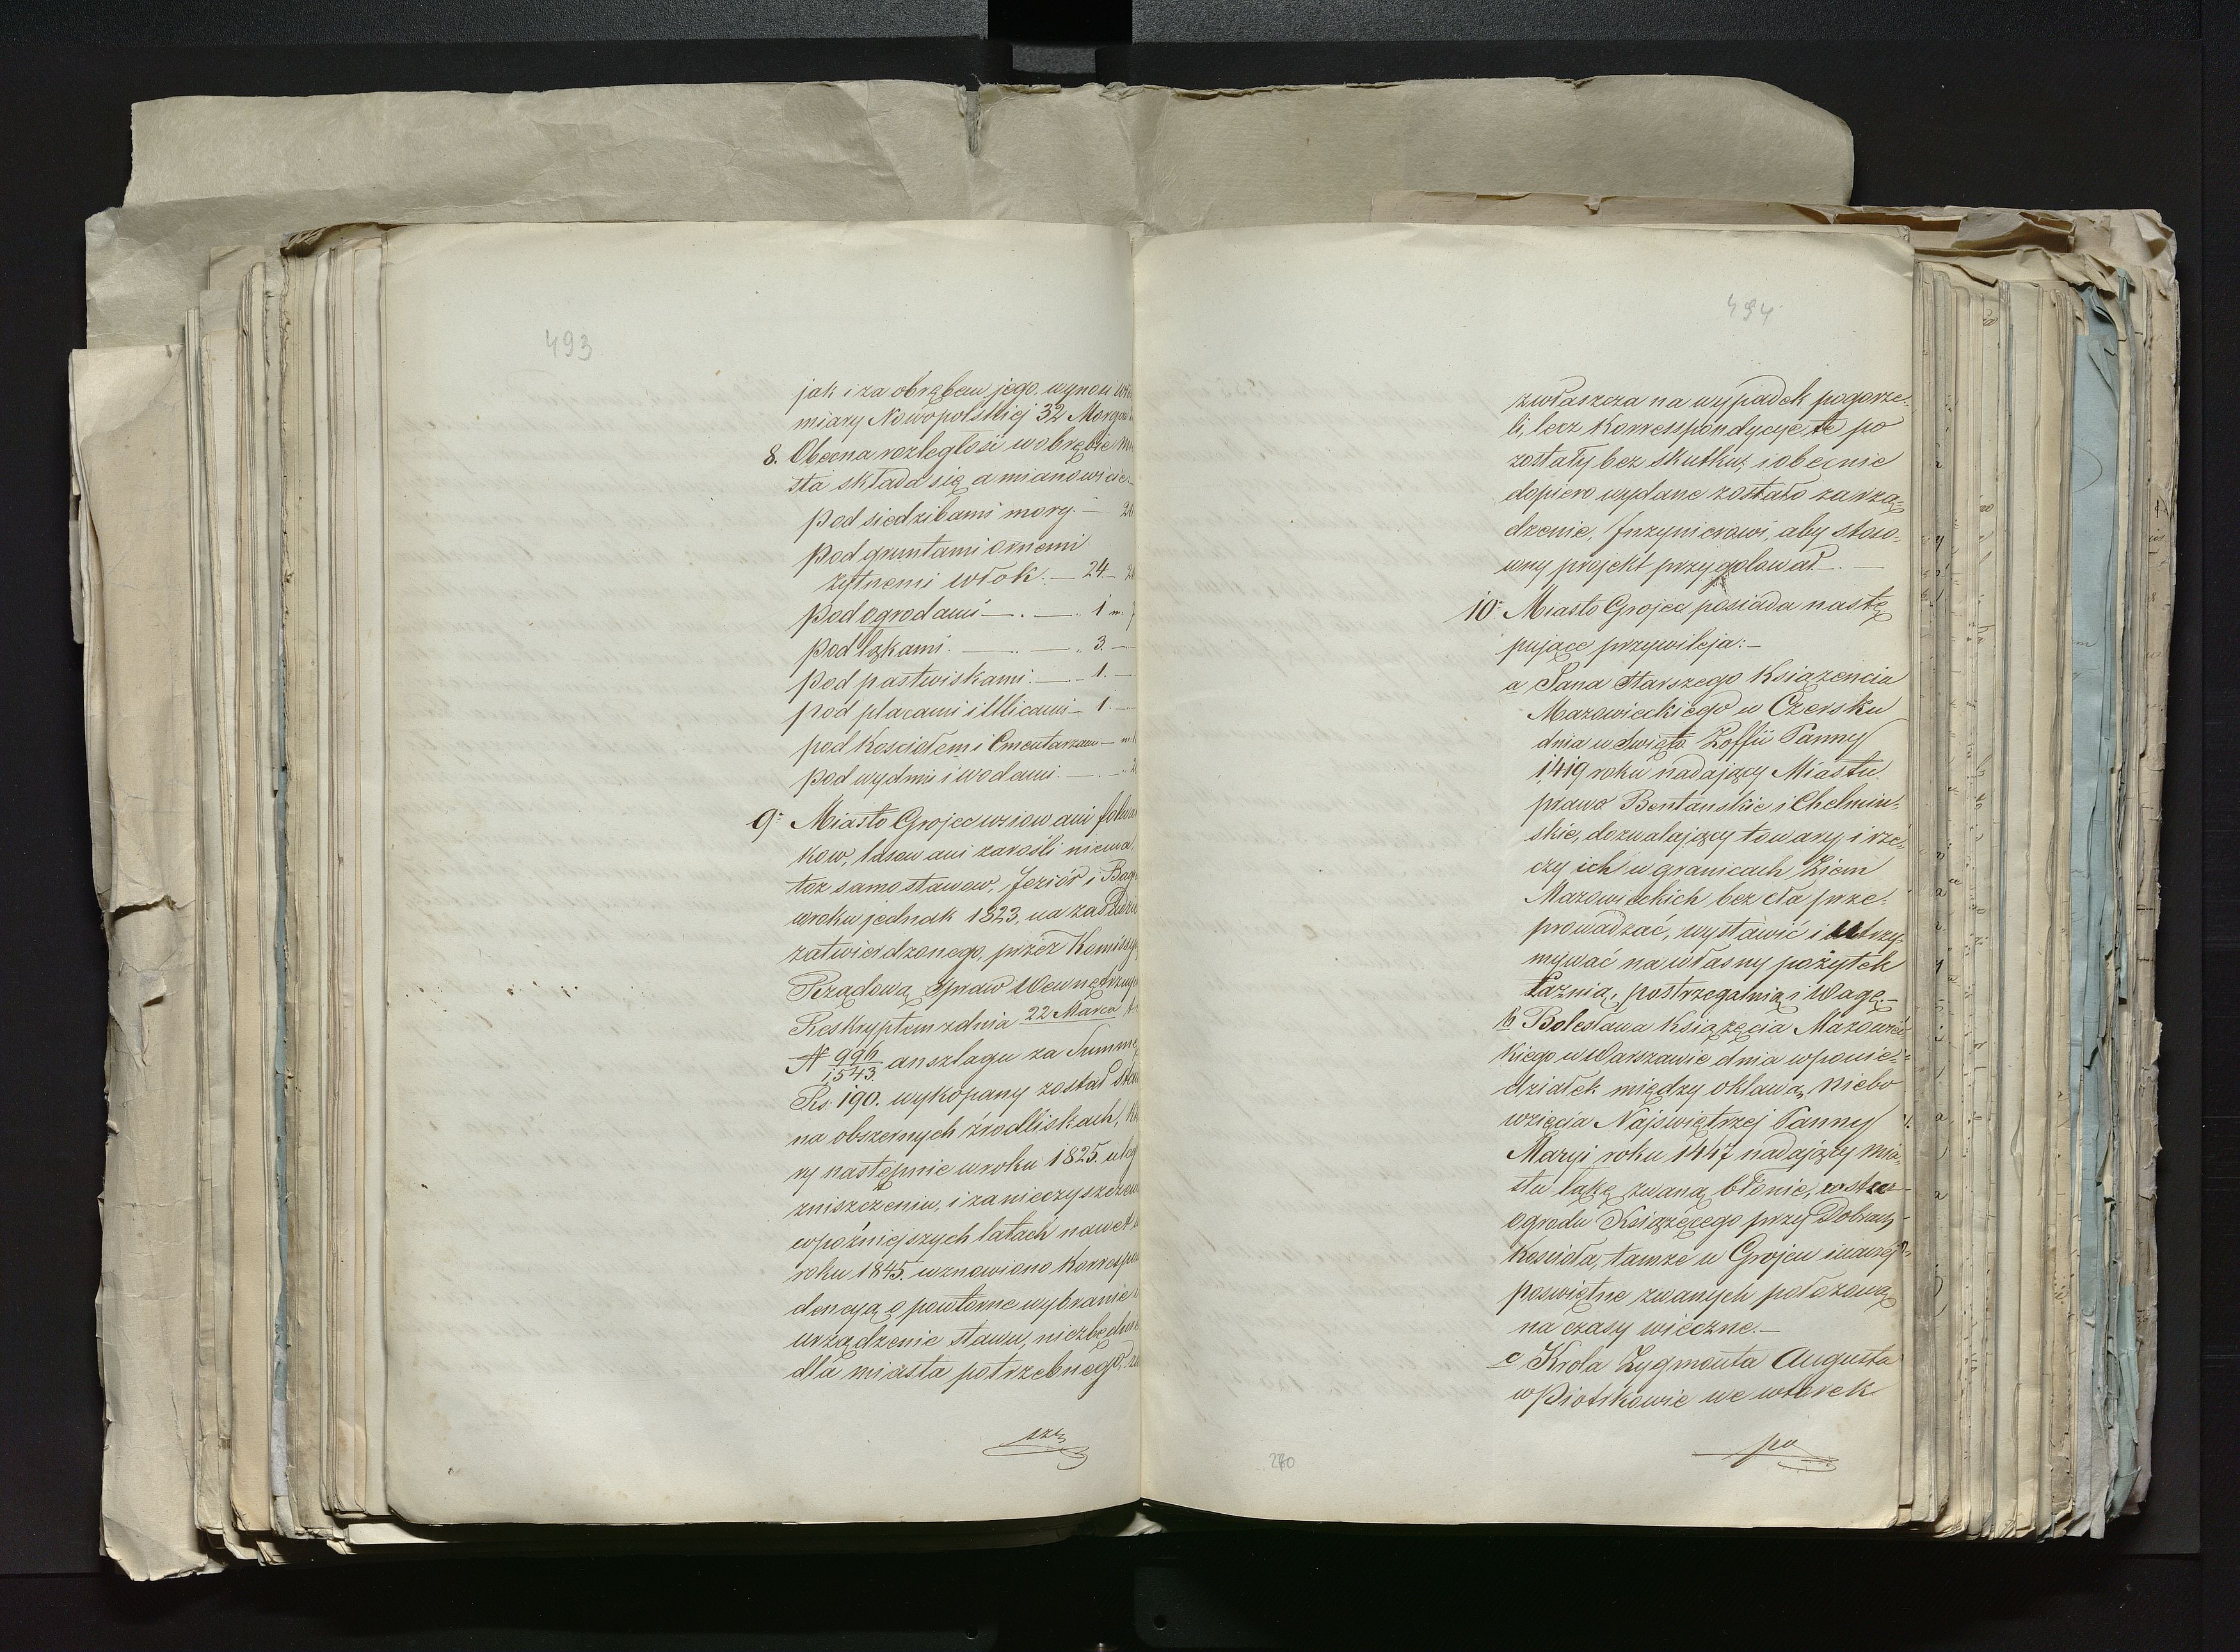 493
jak i za obrębem jego wynosi
miary Nowopolskiej 32 Morgów
8. Obecna rozległosć w obrębie
sta składa się a mianowicie
pod siedzibami morg. — 20
pod gruntami ornemi
żytnemi włok. — 24 —
pod ogrodami — . — 1 m.
pod łąkami . — . — 3. —
pod pastwiskami . — 1. —
pod placami i Ulicami — 1. —
pod Kosciołem i Cmentarzem —
pod wydmi i wodami . —
9. Miasto Grojec wsiow ani folwar
kow, lasow ani zarosli niema
toz samo stawow, Jeziór i Bag
w roku jednak 1823, na zasadzie
zatwierdzonego, przez Komissyą
Rządową Spraw Wewnętrznych
Reskryptem z dnia 22 Marca
N 996/1543. anszlagu za Summę
Rs. 190. wykopany został staw
na obszernych źrodliskach,
ry następnie w roku 1825. uleg
zniszczeniu, i zanieczyszczeniu
w poźniejszych latach nawet
roku 1845. wznowiono Korrespon
dencyą o powtorne wybranie
urządzenie stawu, niezbędnie
dla miasta potrzebnego,
494
zwłaszcza na wypadek pogorze-
li, lecz Korrespondycye te po
zostały bez skutku, i obecnie
dopiero wydane zostało zarzą-
dzenie, Inzynierowi, aby stoso-
wny projekt przygotował. —
10. Miasto Grojec posiada nastę
pujące przywileja: —
a, Jana Starszego Ksiązencia
Mazowieckiego w Czersku
dnia w Swięto Zoffii Panny
1419 roku nadający Miastu
prawo Chelmin-
skie, dozwalający towary i rze-
czy ich w granicach Ziem
Mazowieckich bez cła prze-
prowadzać, wystawić i utrzy-
mywać na własny pożytek
Łaznią, postrzegalnią i Wagę. —
b, Bolesława Książęcia Mazowiec-
kiego w Warszawie dnia w ponie-
działek między oktawą, Niebo
wzięcia Najswiętrzej Panny
Maryi roku 1447 nadający mia-
stu łąkę zwaną błonie,
ogrodu Książęcego przy Dobrach
Koscioła, tamze w Grojcu inaczej
poswiętne zwanych położoną
na czasy wieczne. —
c, Krola Zygmonta Augusta
w Piotrkowie we wtorek
po
240